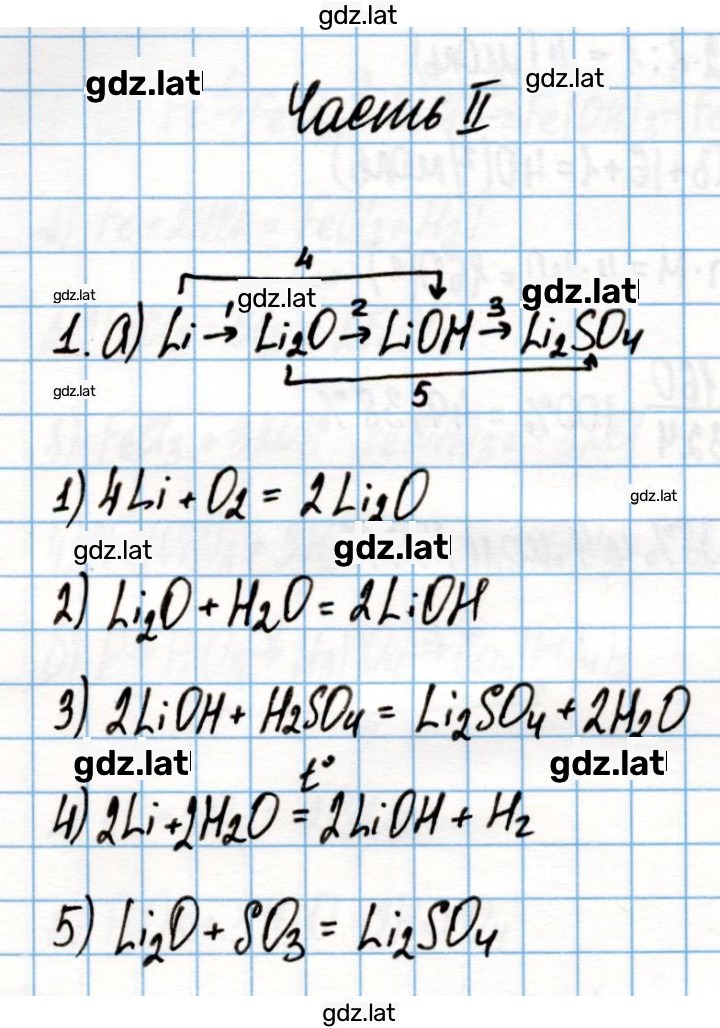 gdz.lat
gdz.lat gdz.lat
Часть II
4
gdz.lat gdz.lat gdz.lat
1. а) Li →¹ Li₂O →² LiOH →³ Li₂SO₄
gdz.lat 5
1) 4Li + O₂ = 2Li₂O
gdz.lat
gdz.lat gdz.lat
2) Li₂O + H₂O = 2LiOH
3) 2LiOH + H₂SO₄ = Li₂SO₄ + 2H₂O
gdz.lat gdz.lat
t°
4) 2Li + 2H₂O = 2LiOH + H₂
5) Li₂O + SO₃ = Li₂SO₄
gdz.lat